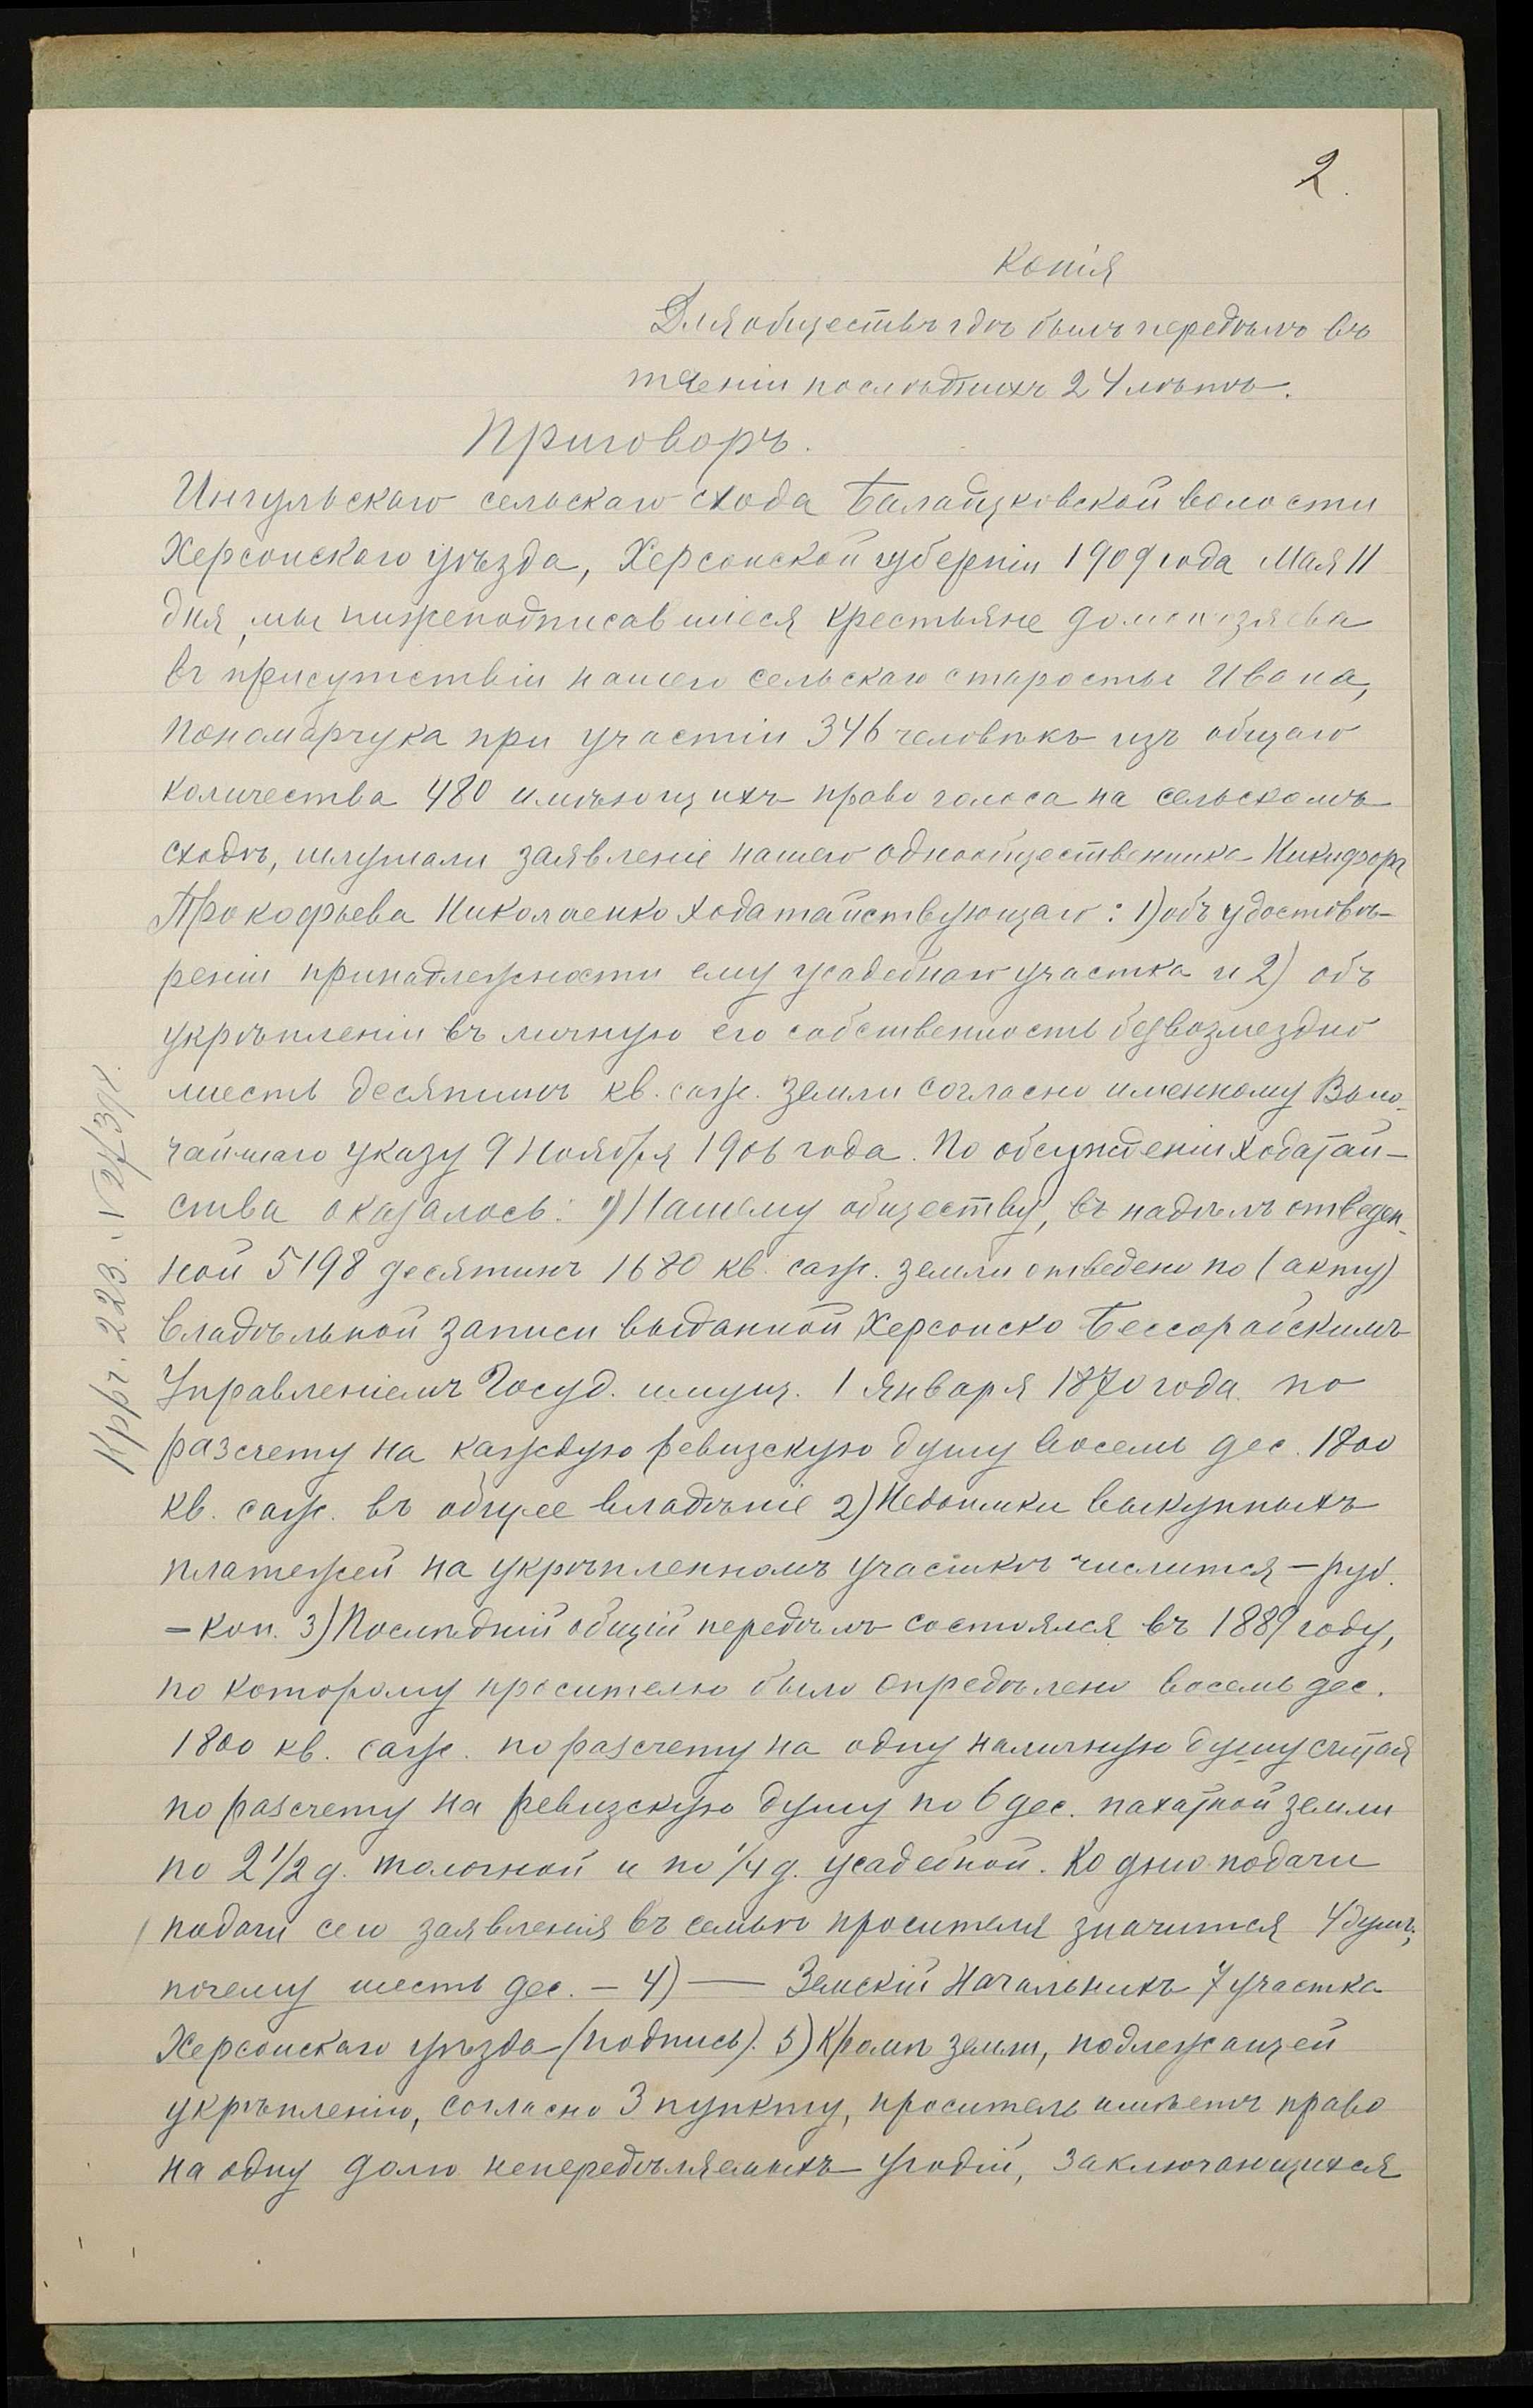 2.
Копія
Для обществъ гдѣ былъ передѣлъ въ
теченіи послѣднихъ 24 лѣтъ.
Приговоръ.
Ингульскаго сельскаго схода Балацковской волости
Херсонскаго уѣзда, Херсонской губерніи 1909 года Мая 11
дня, мы нижеподписавшіеся крестьяне домохозяева
въ присутствіи нашего сельскаго старосты Ивана,
Пономарчука при участіи 346 человѣкъ изъ общаго
количества 480 имѣющихъ право голоса на сельскомъ
сходѣ, слушали заявленіе нашего однообщественника Никифора
Прокофьева Николаенко ходатайствующаго: 1) объ удостовѣ-
реніи принадлежности ему усадебнаго участка и 2) объ
укрѣпленіи въ личную его собственность безвозмездно
шесть десятинъ кв. саж. земли согласно именному Высо-
чайшаго указу 9 Ноября 1906 года. По обсужденіи ходатай-
ства оказалось: 1) Нашему обществу, въ надѣлъ отведен-
ной 5198 десятинъ 1680 кв. саж. земли отведено по (акту)
владѣльной записи выданной Херсонско Бессорабскимъ
Управленіемъ Госуд. имущ. 1 Января 1870 года по
разсчету на каждую ревизскую душу восемь дес. 1800
кв. саж. въ общее владѣніе 2) Недоимки выкупныхъ
платежей на укрѣпленномъ участкѣ числится — руб.
— коп. 3) Послѣдній общій передѣлъ состоялся въ 1889 году,
по которому просителю было опредѣлено восемь дес.
1800 кв. саж. по разсчету на одну наличную душу считая
по разсчету на ревизскую душу по 6 дес. пахатной земли
по 2 1/2 д. толочной и по 1/4 д. усадебной. Ко дню подачи
подачи сего заявленія въ семьѣ просителя значится 4 душъ,
почему шесть дес. — 4) — Земскій Начальникъ 7 участка
Херсонскаго уѣзда (подпись). 5) Кромѣ земли, подлежащей
укрѣпленію, согласно 3 пункту, проситель имѣетъ право
на одну долю непередѣляемыхъ угодій, заключающихся
223.